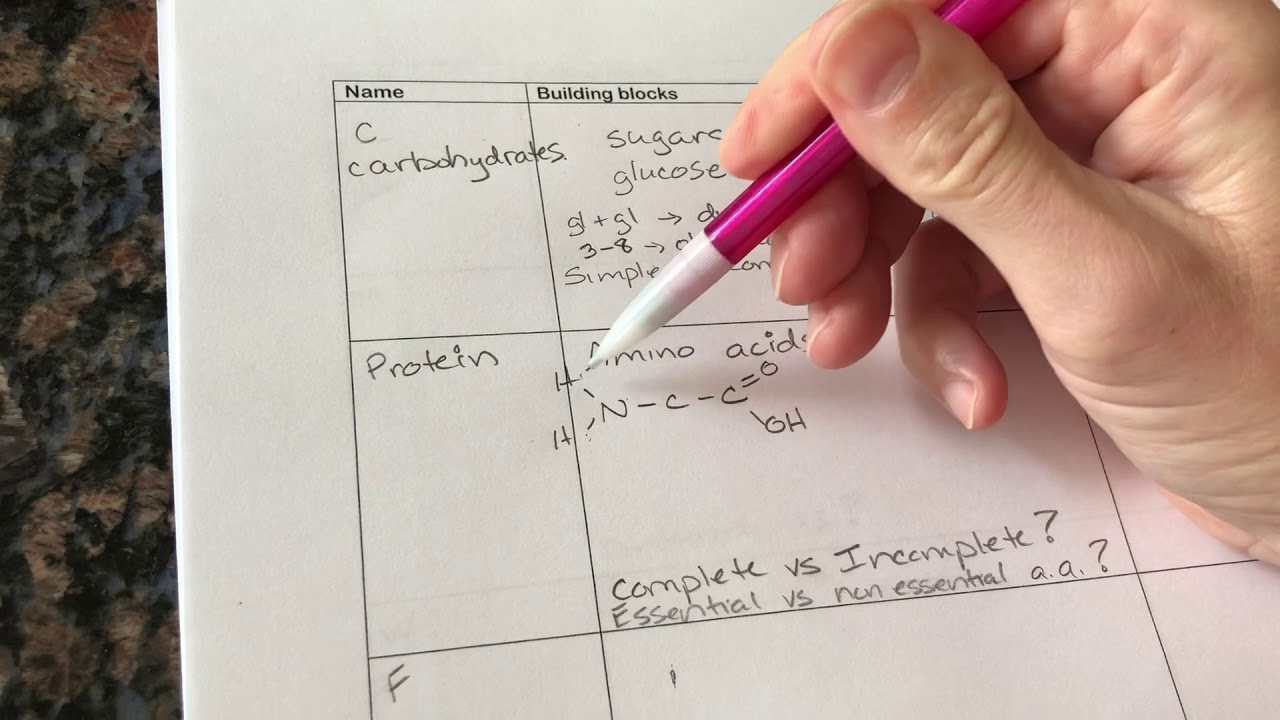 Name Building blocks
C
carbohydrates.
sugars
glucose
gl + gl →
3-8 →
Simple
Protein
Amino acids
H
N - C - C = O
H
OH
Complete vs Incomplete?
Essential vs non essential a.a.?
F